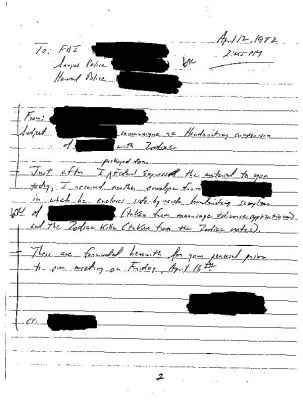 April 12, 1972
2:45 PM
To: FBI
Police
Police
From:
Subject: communique re Handwriting comparison
of with Zodiac
Just after I Federal Expressed the material to you
today, I received another envelope from
in which he encloses side-by-side handwriting samples
of (taken from marriage
and the Zodiac Killer (taken from the Zodiac notes).
These are forwarded herewith for your perusal prior
to our meeting on Friday, April
cc:
2